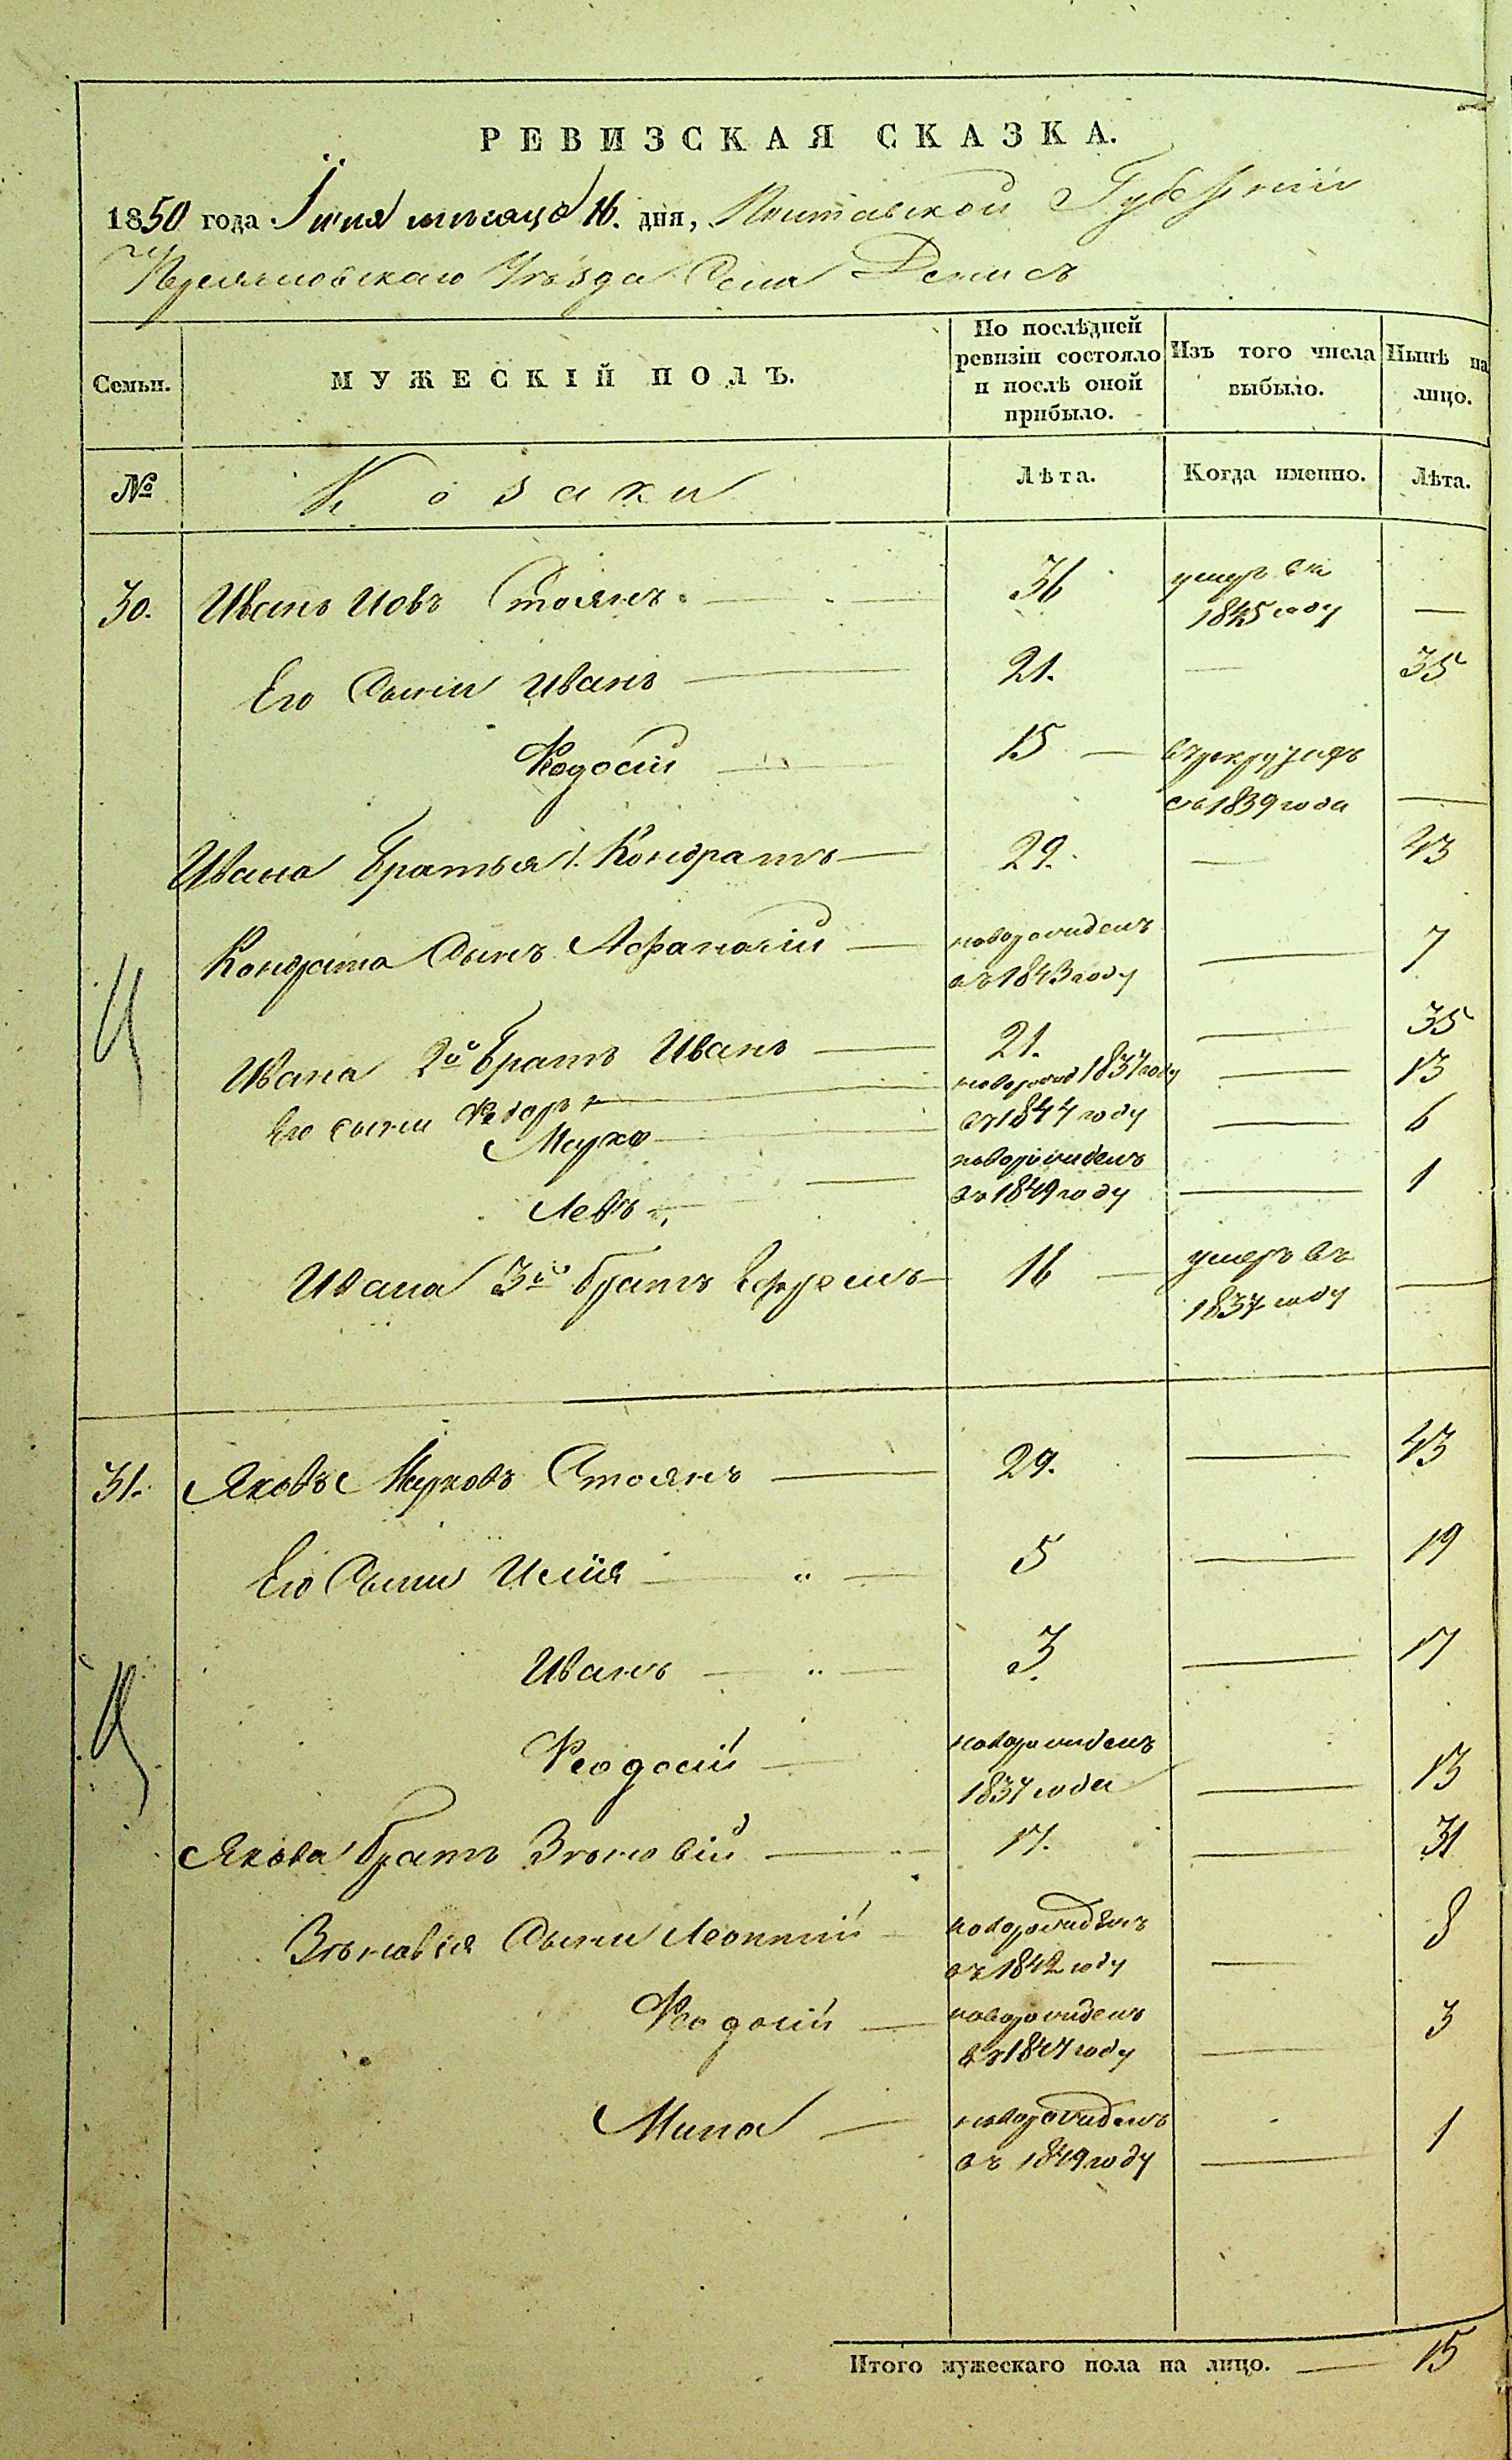 РЕВИЗСКАЯ СКАЗКА.
1850 года Іюня мѣсяца 16. дня, Полтавской Губерніи
Уѣзда Села Денисъ
Семьи.
МУЖЕСКІЙ ПОЛЪ.
По послѣдней ревизіи состояло и послѣ оной прибыло.
Изъ того числа выбыло.
Нынѣ на лицо.
№
Козаки
Лѣта.
Когда именно.
Лѣта.
30. Иванъ Иовъ Стоянъ. — 36 умеръ въ 1845 году —
Его Сыни Иванъ — 21. — 35
Феодосій — 15 — въ рекрутахъ съ 1839 года —
Ивана Братья 1. Кондратъ — 29. — 43
Кондрата Сынъ Афанасій — новорожденъ въ 1843 году — 7
Ивана 2й Братъ Иванъ — 21. — 35
Его сыни Федоръ — новорожд 1837 году — 13
Марко — въ 1844 году — 6
Левъ — новорожденъ въ 1849 году — 1
Ивана 3й братъ Ефремъ — 16 — умеръ въ 1837 году —
31. Яковъ Марковъ Стоянъ — 29. — 43
Его Сыни Илія — " — 5 — 19
Иванъ — " — 3. — 17
Феодосій — новорожденъ 1837 года — 13
Якова братъ Зѣновій — 17. — 31
Зѣновія Сыни Леонтій — новорожденъ въ 1842 году — 8
Феодосій — новорожденъ въ 1847 году — 3
Мина — новорожденъ въ 1849 году — 1
Итого мужескаго пола на лицо. — 15